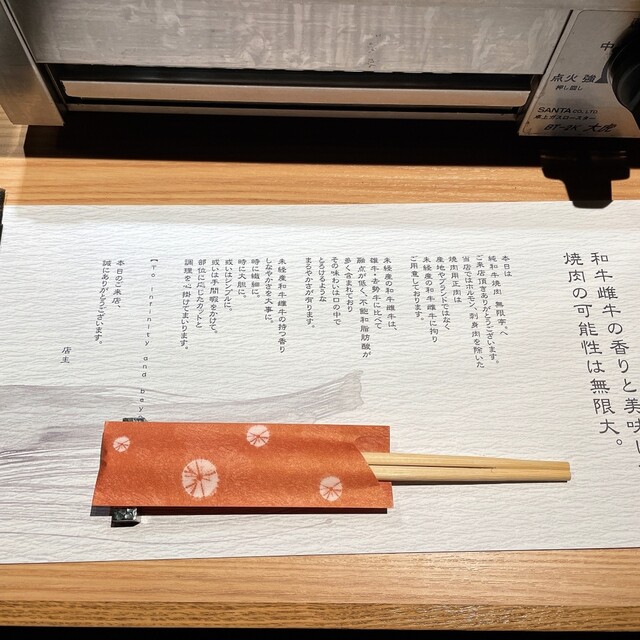 中
点火 強
押し回し
SANTA CO.,LTD.
卓上ガスロースター
BT-2K 大虎
和牛雌牛の香りと美味し
焼肉の可能性は無限大。
本日は
純和牛焼肉 無限亭。へ
ご来店頂きありがとうございます。
当店ではホルモン、刺身肉を除いた
焼肉用正肉は
産地やブランドではなく
未経産の和牛雌牛に拘り
ご用意しております。
未経産の和牛雌牛は、
雄牛・去勢牛に比べて
融点が低く、不飽和脂肪酸が
多く含まれており
その味わいは口の中で
とろけるような
まろやかさが有ります。
未経産和牛雌牛の持つ香り
しなやかさを大事に。
時に繊細に。
時に大胆に。
或いはシンプルに。
或いは手間暇をかけて。
部位に応じたカットと
調理を心掛けてまいります。
【To infinity and bey
本日のご来店、
誠にありがとうございます。
店主